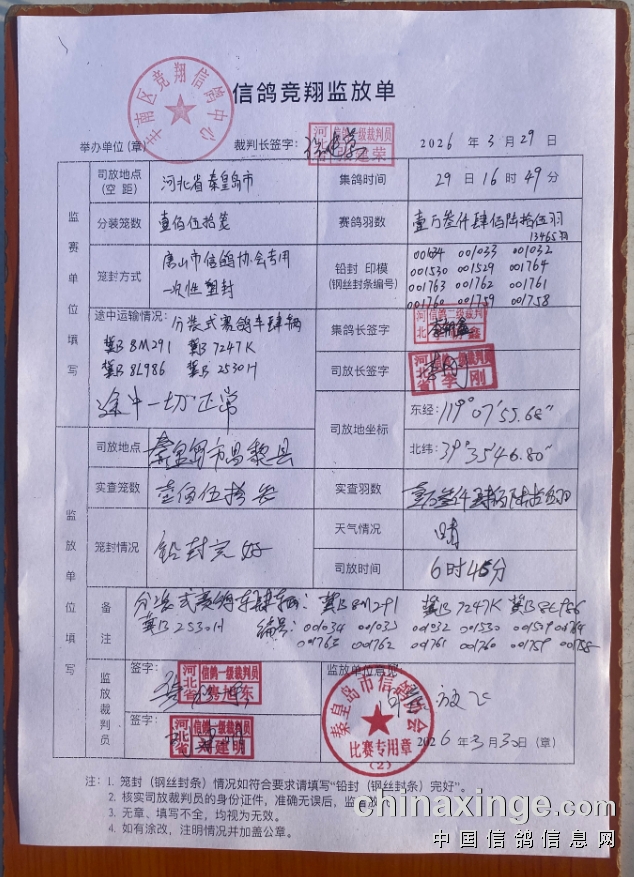 信鸽竞翔监放单
丰南区竞翔信鸽中心
举办单位(章)
裁判长签字:
河北省 信鸽一级裁判员
2026 年 3 月 29 日
监赛单位填写
司放地点(空距) 河北省秦皇岛市
集鸽时间 29 日 16 时 49 分
分装笼数 壹佰伍拾笼
赛鸽羽数 壹万叁仟肆佰陆拾伍羽
13465羽
笼封方式 唐山市信鸽协会专用
一次性塑封
铅封 印模
(钢丝封条编号)
001033 001032
001530 001529 001764
001763 001762 001761
001760 001759 001758
途中运输情况: 分装式赛鸽车肆辆
冀B 8M291 冀B 7247K
冀B 8L986 冀B 2530H
途中一切正常
集鸽长签字 河北 信鸽二级裁判
司放长签字 河北省 信鸽一级裁判员 李刚
司放地坐标
东经: 119° 07′ 55.68″
北纬: 39° 35′ 46.80″
监放单位填写
司放地点 秦皇岛市昌黎县
实查笼数 壹佰伍拾笼
实查羽数 壹万叁仟肆佰陆拾伍羽
笼封情况 铅封完好
天气情况 晴
司放时间 6时45分
备注
分装式赛鸽车肆辆: 冀B 8M291 冀B 7247K 冀B 8L986
冀B 2530H 编号: 001034 001033 001032 001530 001529 001764
001763 001762 001761 001760 001759 001758
监放裁判员
签字:
河北省 信鸽一级裁判员
签字:
河北省 信鸽一级裁判员
监放单位意见
同意放飞
秦皇岛市信鸽协会
比赛专用章
(2)
2026 年 3 月 30 日 (章)
注: 1. 笼封(钢丝封条)情况如符合要求请填写“铅封(钢丝封条)完好”。
2. 核实司放裁判员的身份证件,准确无误后,监督放
3. 无章、填写不全,均视为无效。
4. 如有涂改,注明情况并加盖公章。
chinaxinge.com
中国信鸽信息网